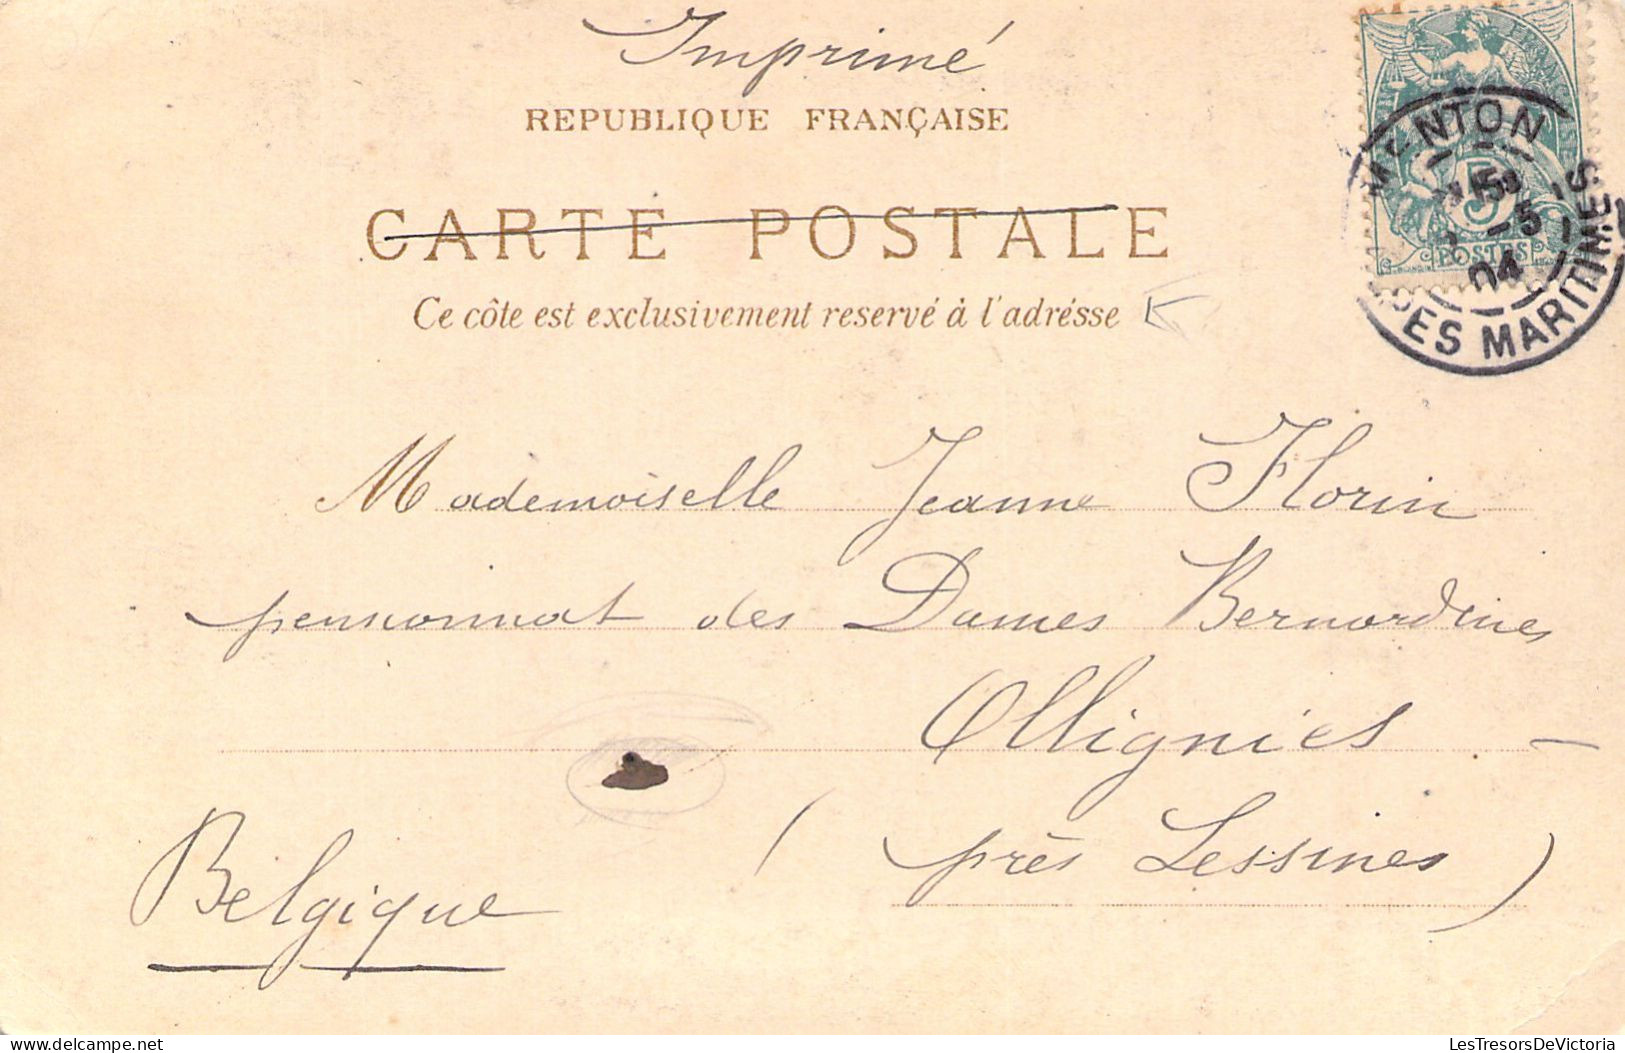 Imprimé
REPUBLIQUE FRANÇAISE
CARTE POSTALE
Ce côte est exclusivement reservé à l'adrésse
MENTON
5
-5
04
MARITIMES
5
POSTES
Mademoiselle Jeanne Florin
pensionnat des Dames Bernardines
Ollignies -
(près Lessines)
Belgique
LesTresorsDeVictoria